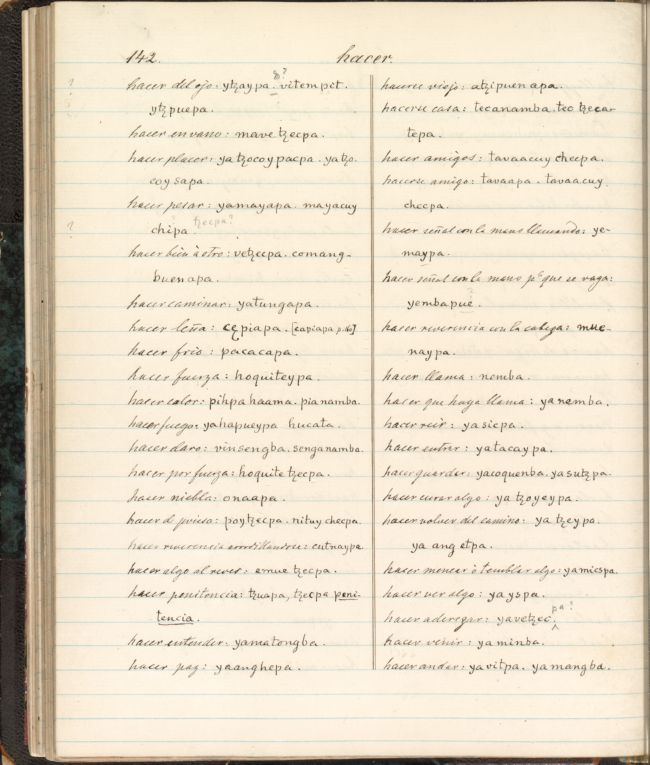 142. hacer.
?
hacer del ojo: ytꜩaypa. vitempit.
8?
ytꜩpuepa.
hacer en vano: mave tꜩecpa.
hacer placer: ya tꜩocoy pacpa. yatꜩo.
coy sapa.
hacer pesar: yamayapa. mayacuy
? chipa tꜩecpa?
hacer bien à otro: vetꜩecpa. comang-
buenapa.
hacer caminar: yatungapa.
hacer leña: cępiapa. [capiapa p. 160]
hacer frio: pacacapa.
hacer fuerza: hoquiteypa.
hacer calor: pihpahaama. pianamba.
hacer fuego: yahapueypa hucata.
hacer claro: vinsengba. senganamba.
hacer por fuerza: hoquite tꜩecpa.
hacer niebla: onaapa.
hacer de priesa: poytꜩecpa. nituy checpa.
hacer reverencia arrodillandose: cutnaypa.
hacer algo al reves: emue tꜩecpa.
hacer penitencia: tꜩuapa, tꜩecpa peni-
tencia.
hacer entender: yamatongba.
hacer paz: yaanghepa.
hacerse viejo: atꜩipuenapa.
hacerse casa: tecanamba. tec tꜩecar
tepa.
hacer amigos: tavaacuy checpa.
hacerse amigo: tavaapa. tavaacuy
checpa.
hacer señal con la mano llamando: ye-
maypa.
hacer señal con la mano pᵃ que se vaya:
yembapue.
hacer reverencia con la cabeza: mue-
naypa.
hacer llama: nemba.
hacer que haya llama: yanemba.
hacer reir: yasicpa.
hacer entrar: yatacaypa.
hacer guardar: yacoquenba. yasutꜩpa.
hacer curar algo: ya tꜩoyeypa.
hacer volver del camino: ya tꜩeypa.
ya angetpa.
hacer menear ò temblar algo: yamicspa.
hacer ver algo: yayspa.
hacer aderezar: yavetꜩec. pa?
hacer venir: yaminba.
hacer andar: yavitpa. yamangba.